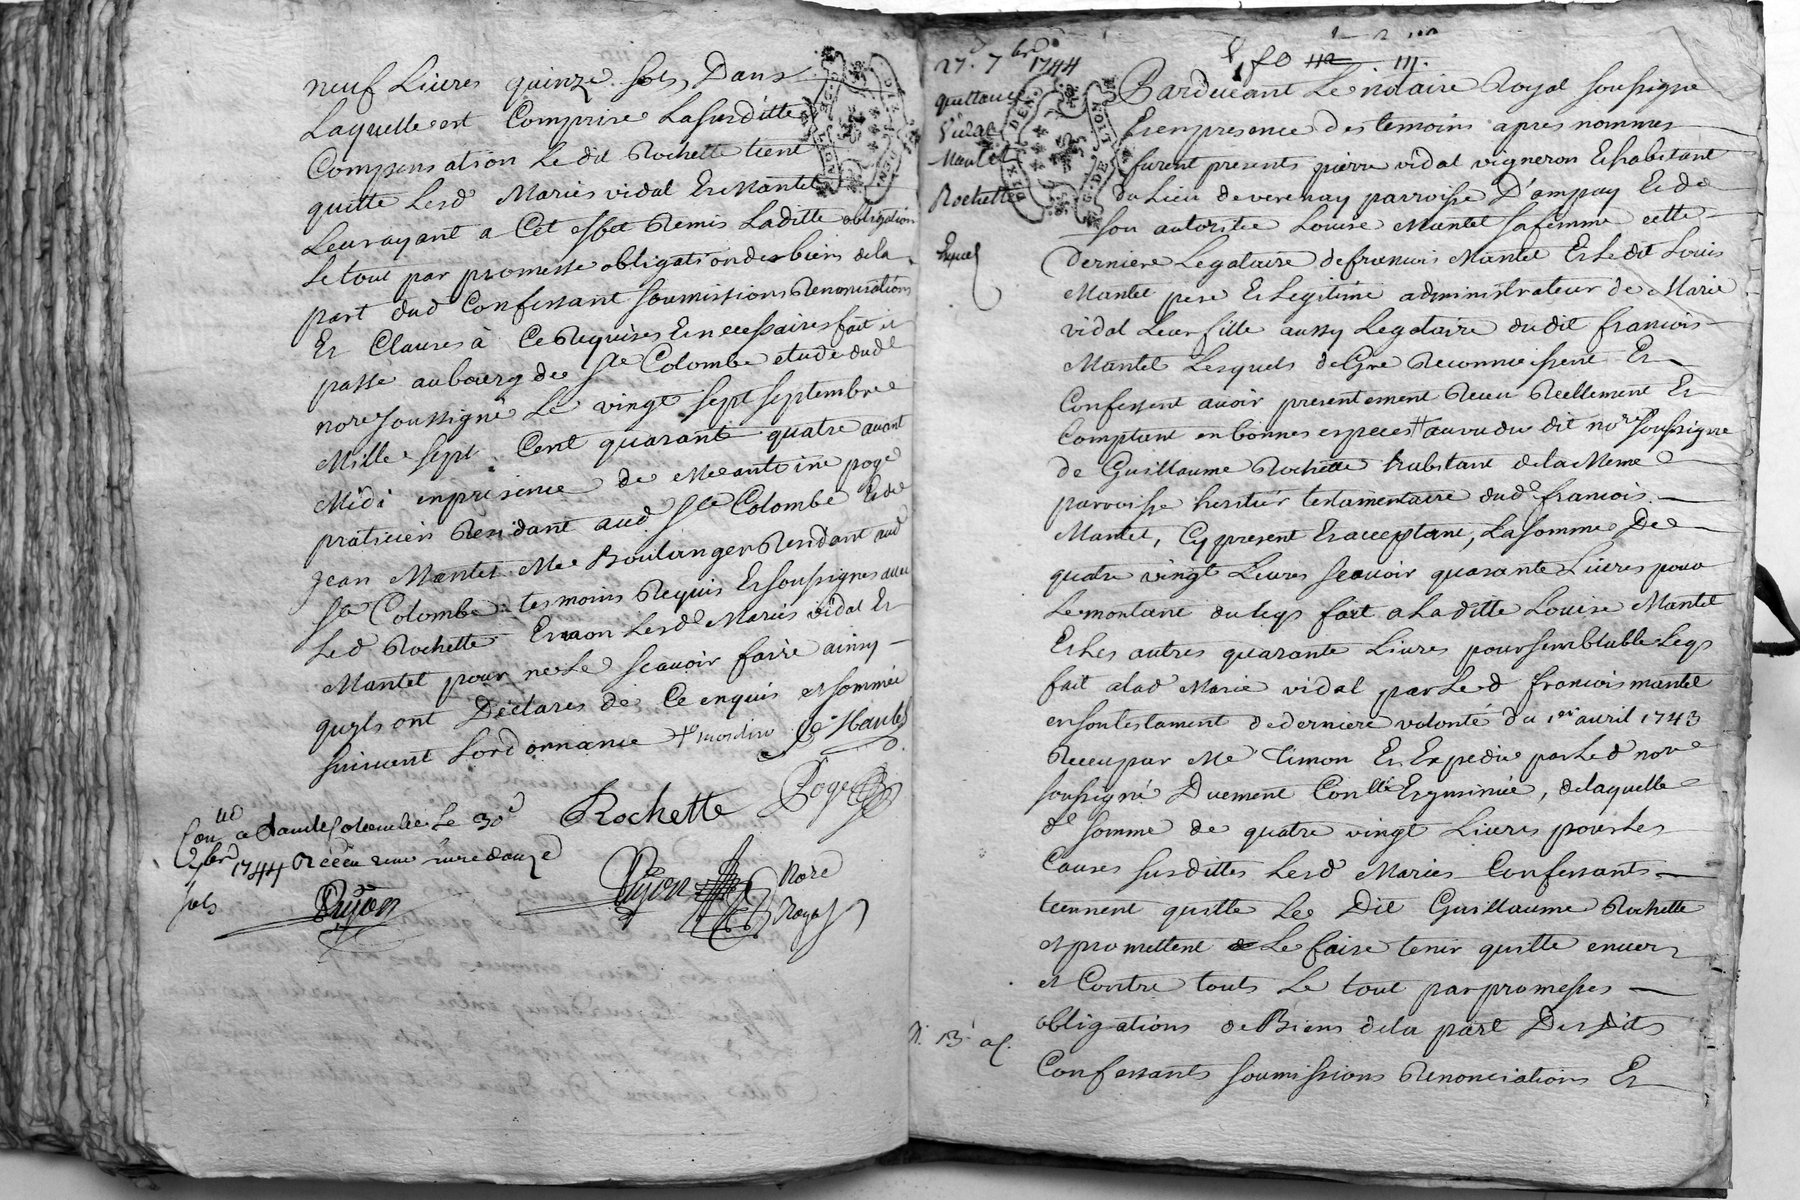 neuf Livres quinze sols, Dans
Laquelle est Comprise La susditte
Compensation Le dit Rochette tient
quitte Lesd Mariés vidal Et Mantel
Leur ayant a Cet effet Remis Laditte obligation
Le tout par promesse obligation des biens de la
part dud Confessant soumissions Renonciations
Et Clauses à Ce Requises Et necessaires fait et
passé au bourg de Ste Colombe etude dud
nore soussigné Le vingt sept septembre
Mille sept Cent quarante quatre avant
Midi en presence de Me antoine poge
praticien Residant aud Ste Colombe Et de
Jean Mantel Me Boulanger Residant aud
Ste Colombe tesmoins Requis Et soussignes avec
Led Rochette Et non Lesd Mariés vidal Et
Mantel pour ne Le scavoir faire ainsy
quils ont Déclarés de Ce enquis et sommés
suivant Lordonnance
J Mantel
Rochette
Poge
Conllé a Sainte Colombe Le 30e
7bre 1744 Receu neuf livre douze
sols
Dujon
Dujon Nore Royal
27. 7bre 1744
fo 112 111.
quittance
Vidal
Mantel
Rochette
Expéd
Pardevant Le notaire Royal soussigné
Et en presence des temoins apres nommés
furent presents pierre vidal vigneron Et habitant
du Lieu de verenay parroisse D'ampuy Et de
son autorité Louise Mantel sa femme cette
derniere Legataire de francois Mantel Et Le dit Louis
Mantel pere Et Legitime administrateur de Marie
vidal Leur fille aussy Legataire du dit francois
Mantel Lesquels de Gré Reconnoissent Et
Confessent avoir presentement Receu Reellement Et
Comptant en bonnes especes au vu du dit nore soussigné
de Guillaume Rochette habitant de la Meme
parroisse heritier testamentaire dud francois
Mantel, Cy present Et acceptant, La somme De
quatre vingt Livres scavoir quarante Livres pour
Le montant du legs fait a La ditte Louise Mantel
Et Les autres quarante Livres pour semblable Legs
fait a lad Marie vidal par Led francois mantel
en son testament de derniere volonté du 1er avril 1743
Receu par Me Timon Et Expedié par Led nore
soussigné Duement Conllé Et insinué, de laquelle
de somme de quatre vingt Livres pour Les
Causes susdittes Lesd Mariés Confessants
tiennent quitte Le Dit Guillaume Rochette
et promettent Le faire tenir quitte envers
et Contre touts Le tout par promesses
obligations de Biens de la part Des dits
Confessants soumissions Renonciations Et